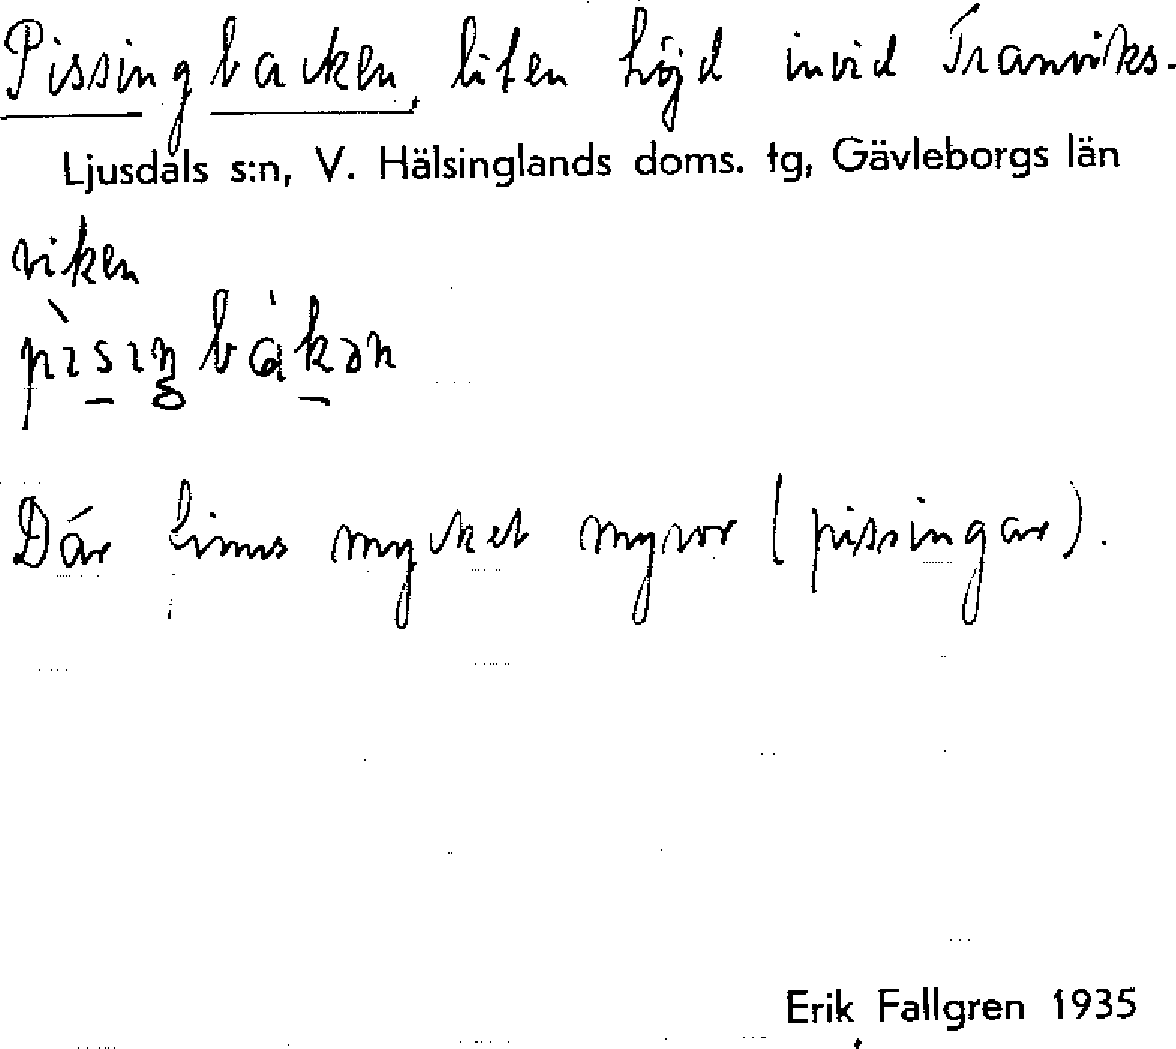 Pissingbacken, liten höjd invid Tranviks-
Ljusdals s:n, V. Hälsinglands doms. tg, Gävleborgs län
viken
pìsıŋbákən
Där finns mycket myror (pissingar).
Erik Fallgren 1935